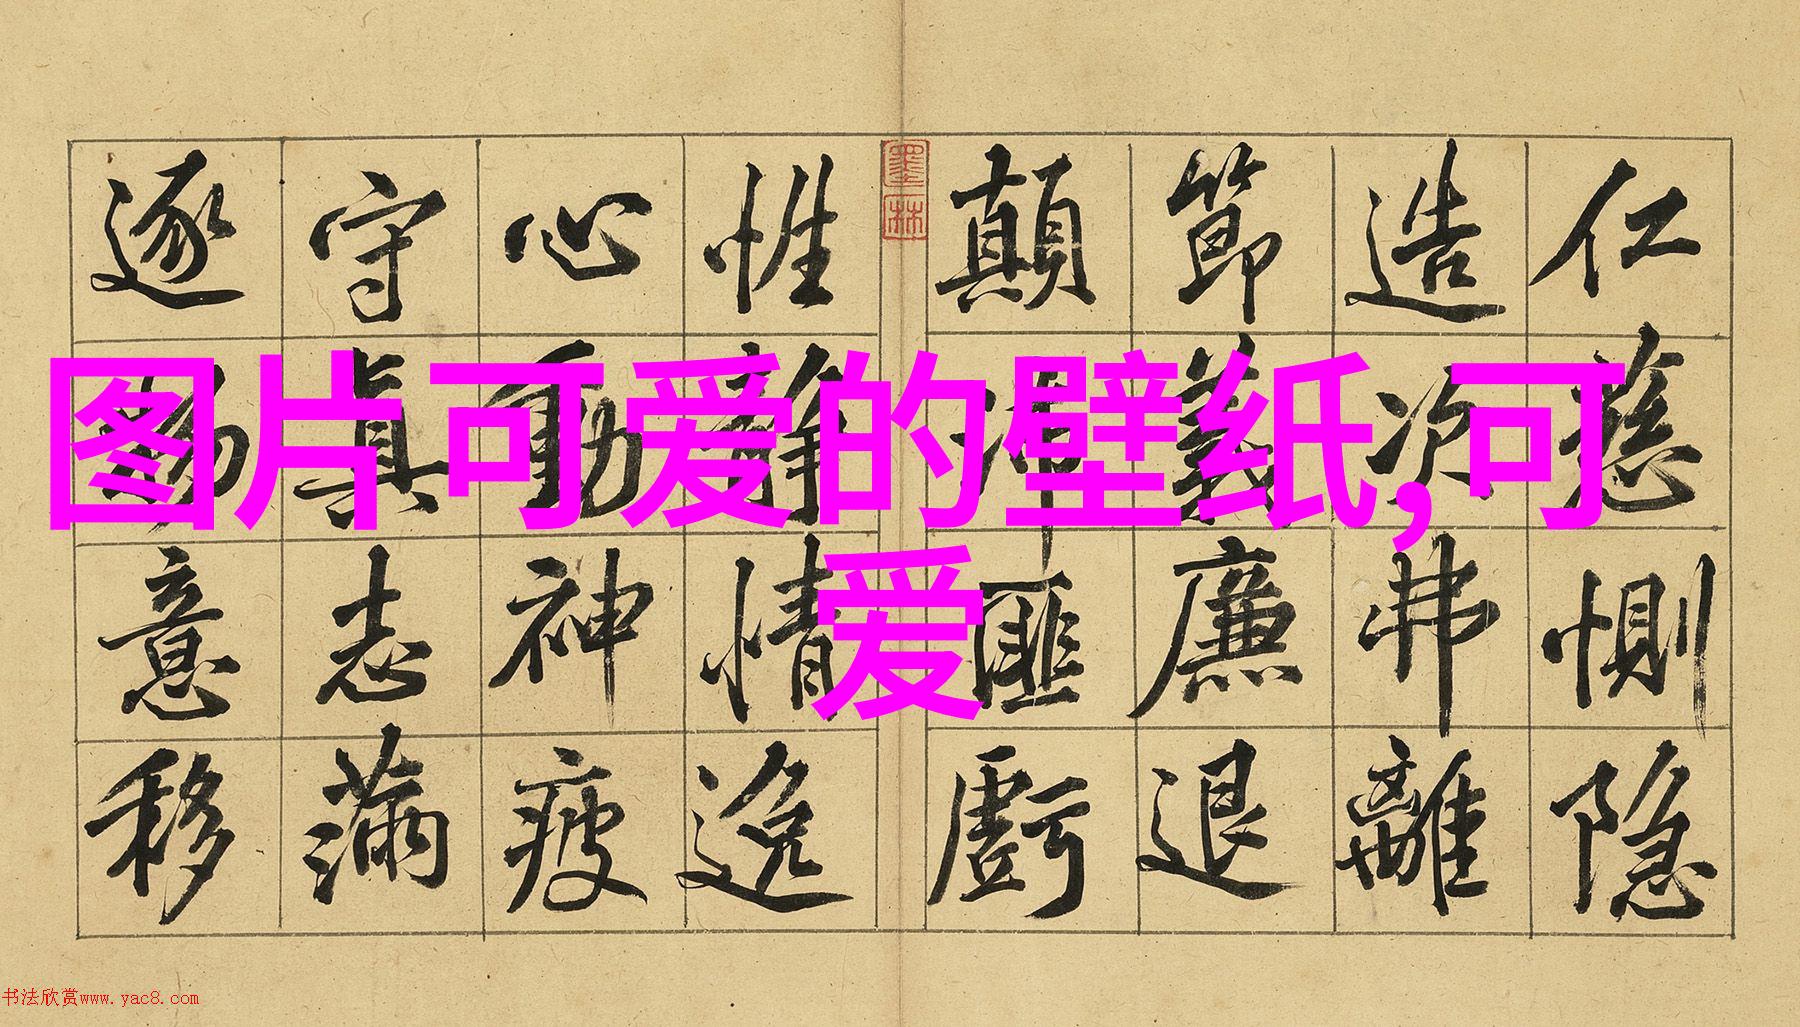 图片可爱的壁纸,可
爱
仁慈惻隐
造次弗離
節義廉退
顛沛匪虧
性靜情逸
心動神疲
守真志滿
逐物意移
墨林
书法欣赏www.yac8.com